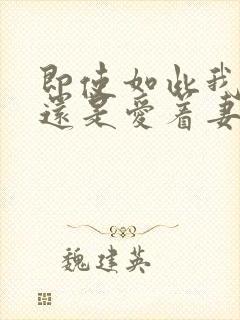 即使如此我
還是愛着妻
魏建英